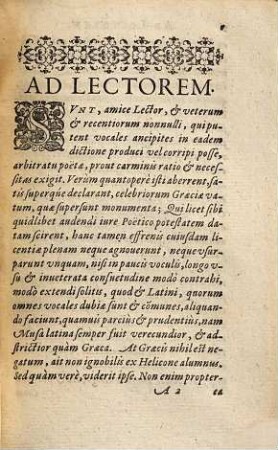 AD LECTOREM.
SVNT, amice Lector, & veterum
& recentiorum nonnulli, qui pu-
tent vocales ancipites in eadem
dictione produci vel corripi posse,
arbitratu poëtæ, prout carminis ratio & neces-
sitas exigit. Verùm quantopere isti aberrent, sa-
tis superque declarant, celebriorum Græciæ va-
tum, quæ supersunt monumenta; Qui licet sibi
quidlibet audendi iure Poëtico potestatem da-
tam scirent, hanc tamen effrenis cuiusdam li-
centiæ plenam neque agnouerunt, neque vsur-
parunt vnquam, nisi in paucis voculis, longo v-
su & inueterata consuetudine modò contrahi,
modò extendi solitis, quod & Latini, quorum
omnes vocales dubiæ sunt & cōmunes, aliquan-
do faciunt, quamuis parciùs & prudentiùs, nam
Musa latina semper fuit verecundior, & ad-
strictior quàm Græca. At Græcis nihil est ne-
gatum, ait non ignobilis ex Helicone alumnus.
Sed quàm verè, viderit ipse. Non enim propter-
A 2 ea